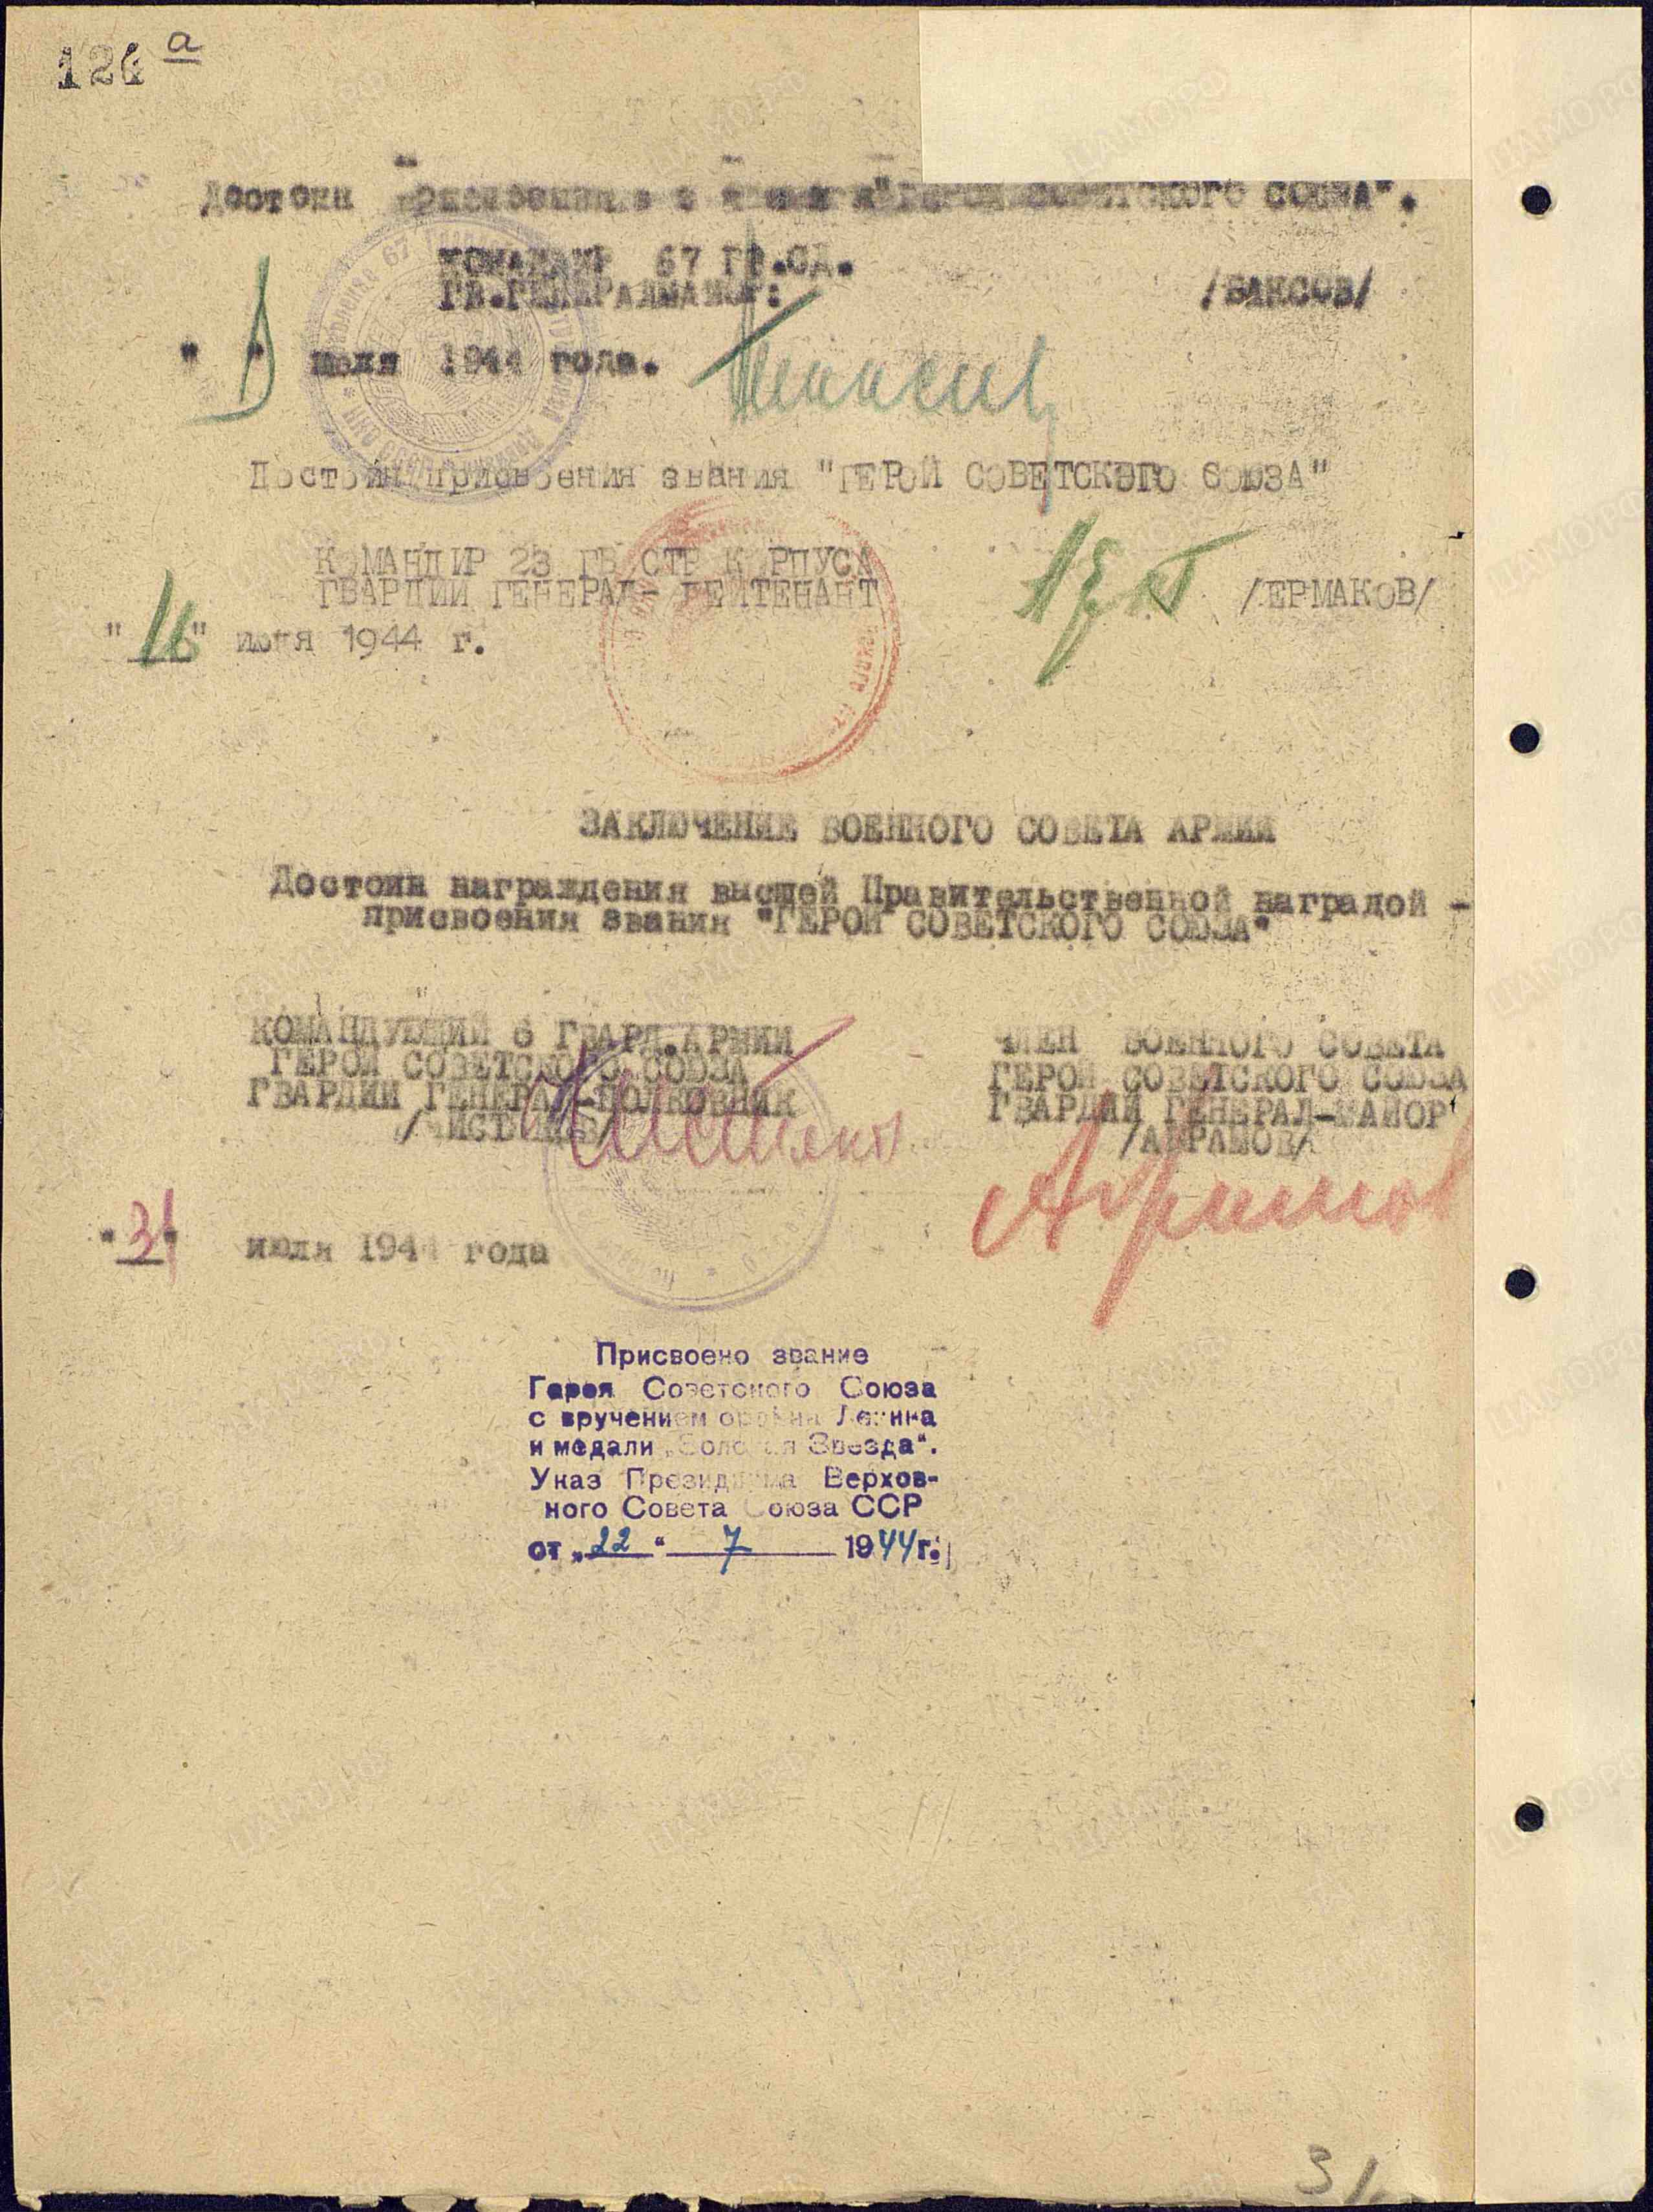 а
Достоин присвоения звания "ГЕРОЙ СОВЕТСКОГО СОЮЗА".
КОМАНДИР 67 ГВ.СД.
ГВ.ГЕНЕРАЛМАЙОР: /БАКСОВ/
" " июля 1944 года.
Достоин присвоения звания "ГЕРОЙ СОВЕТСКОГО СОЮЗА"
КОМАНДИР 23 ГВ СТР КОРПУСА
ГВАРДИИ ГЕНЕРАЛ-ЛЕЙТЕНАНТ /ЕРМАКОВ/
"16" июля 1944 г.
ЗАКЛЮЧЕНИЕ ВОЕННОГО СОВЕТА АРМИИ
Достоин награждения высшей Правительственной наградой -
присвоения звания "ГЕРОЙ СОВЕТСКОГО СОЮЗА"
КОМАНДУЮЩИЙ 6 ГВАРД.АРМИИ
ГЕРОЙ СОВЕТСКОГО СОЮЗА
ГВАРДИИ ГЕНЕРАЛ-ПОЛКОВНИК
/ЧИСТЯКОВ/
ЧЛЕН ВОЕННОГО СОВЕТА
ГЕРОЙ СОВЕТСКОГО СОЮЗА
ГВАРДИИ ГЕНЕРАЛ-МАЙОР
/АБРАМОВ/
Абрамов
" " июля 1944 года
Присвоено звание
Героя Советского Союза
с вручением ордена Ленина
и медали „Золотая Звезда".
Указ Президиума Верхов-
ного Совета Союза ССР
от „22" 7 1944г.